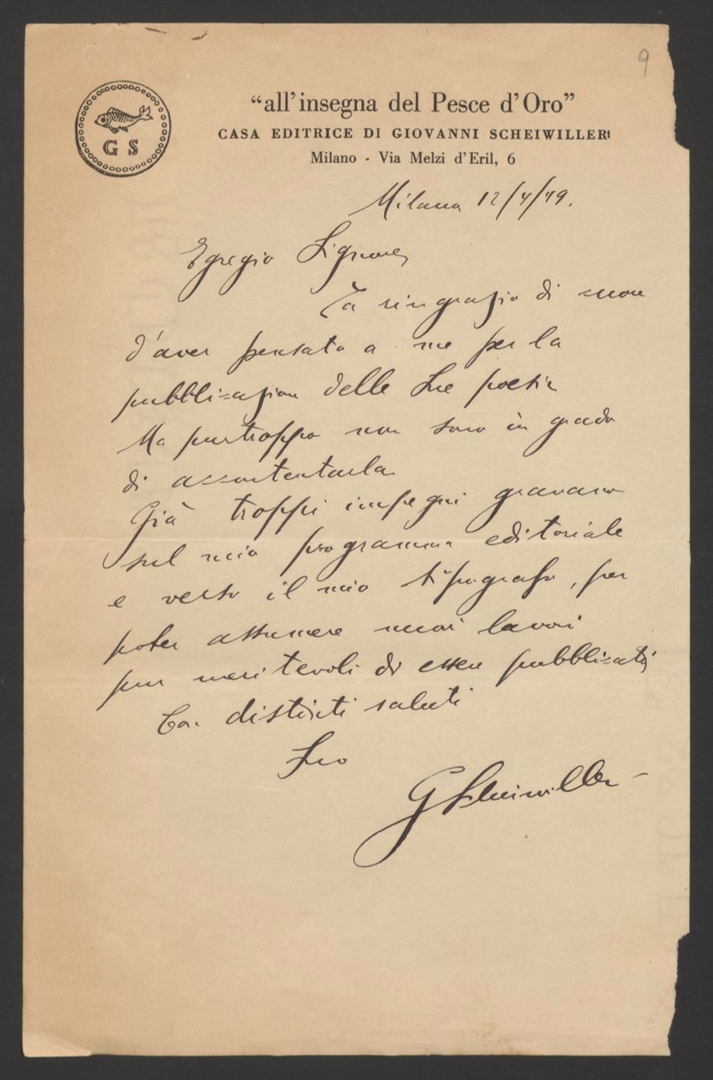 9
"all'insegna del Pesce d'Oro"
CASA EDITRICE DI GIOVANNI SCHEIWILLER
Milano - Via Melzi d'Eril, 6
G S
Milano 12/4/49.
Egregio Signore,
La ringrazio di cuore
d'aver pensato a me per la
pubblicazione delle Sue poesie
Ma purtroppo non sono in grado
di accontentarla.
Già troppi impegni gravano
sul mio programma editoriale
e verso il mio tipografo, per
poter assumere nuovi lavori
pur meritevoli di essere pubblicati,
Con distinti saluti
Suo
G Scheiwiller